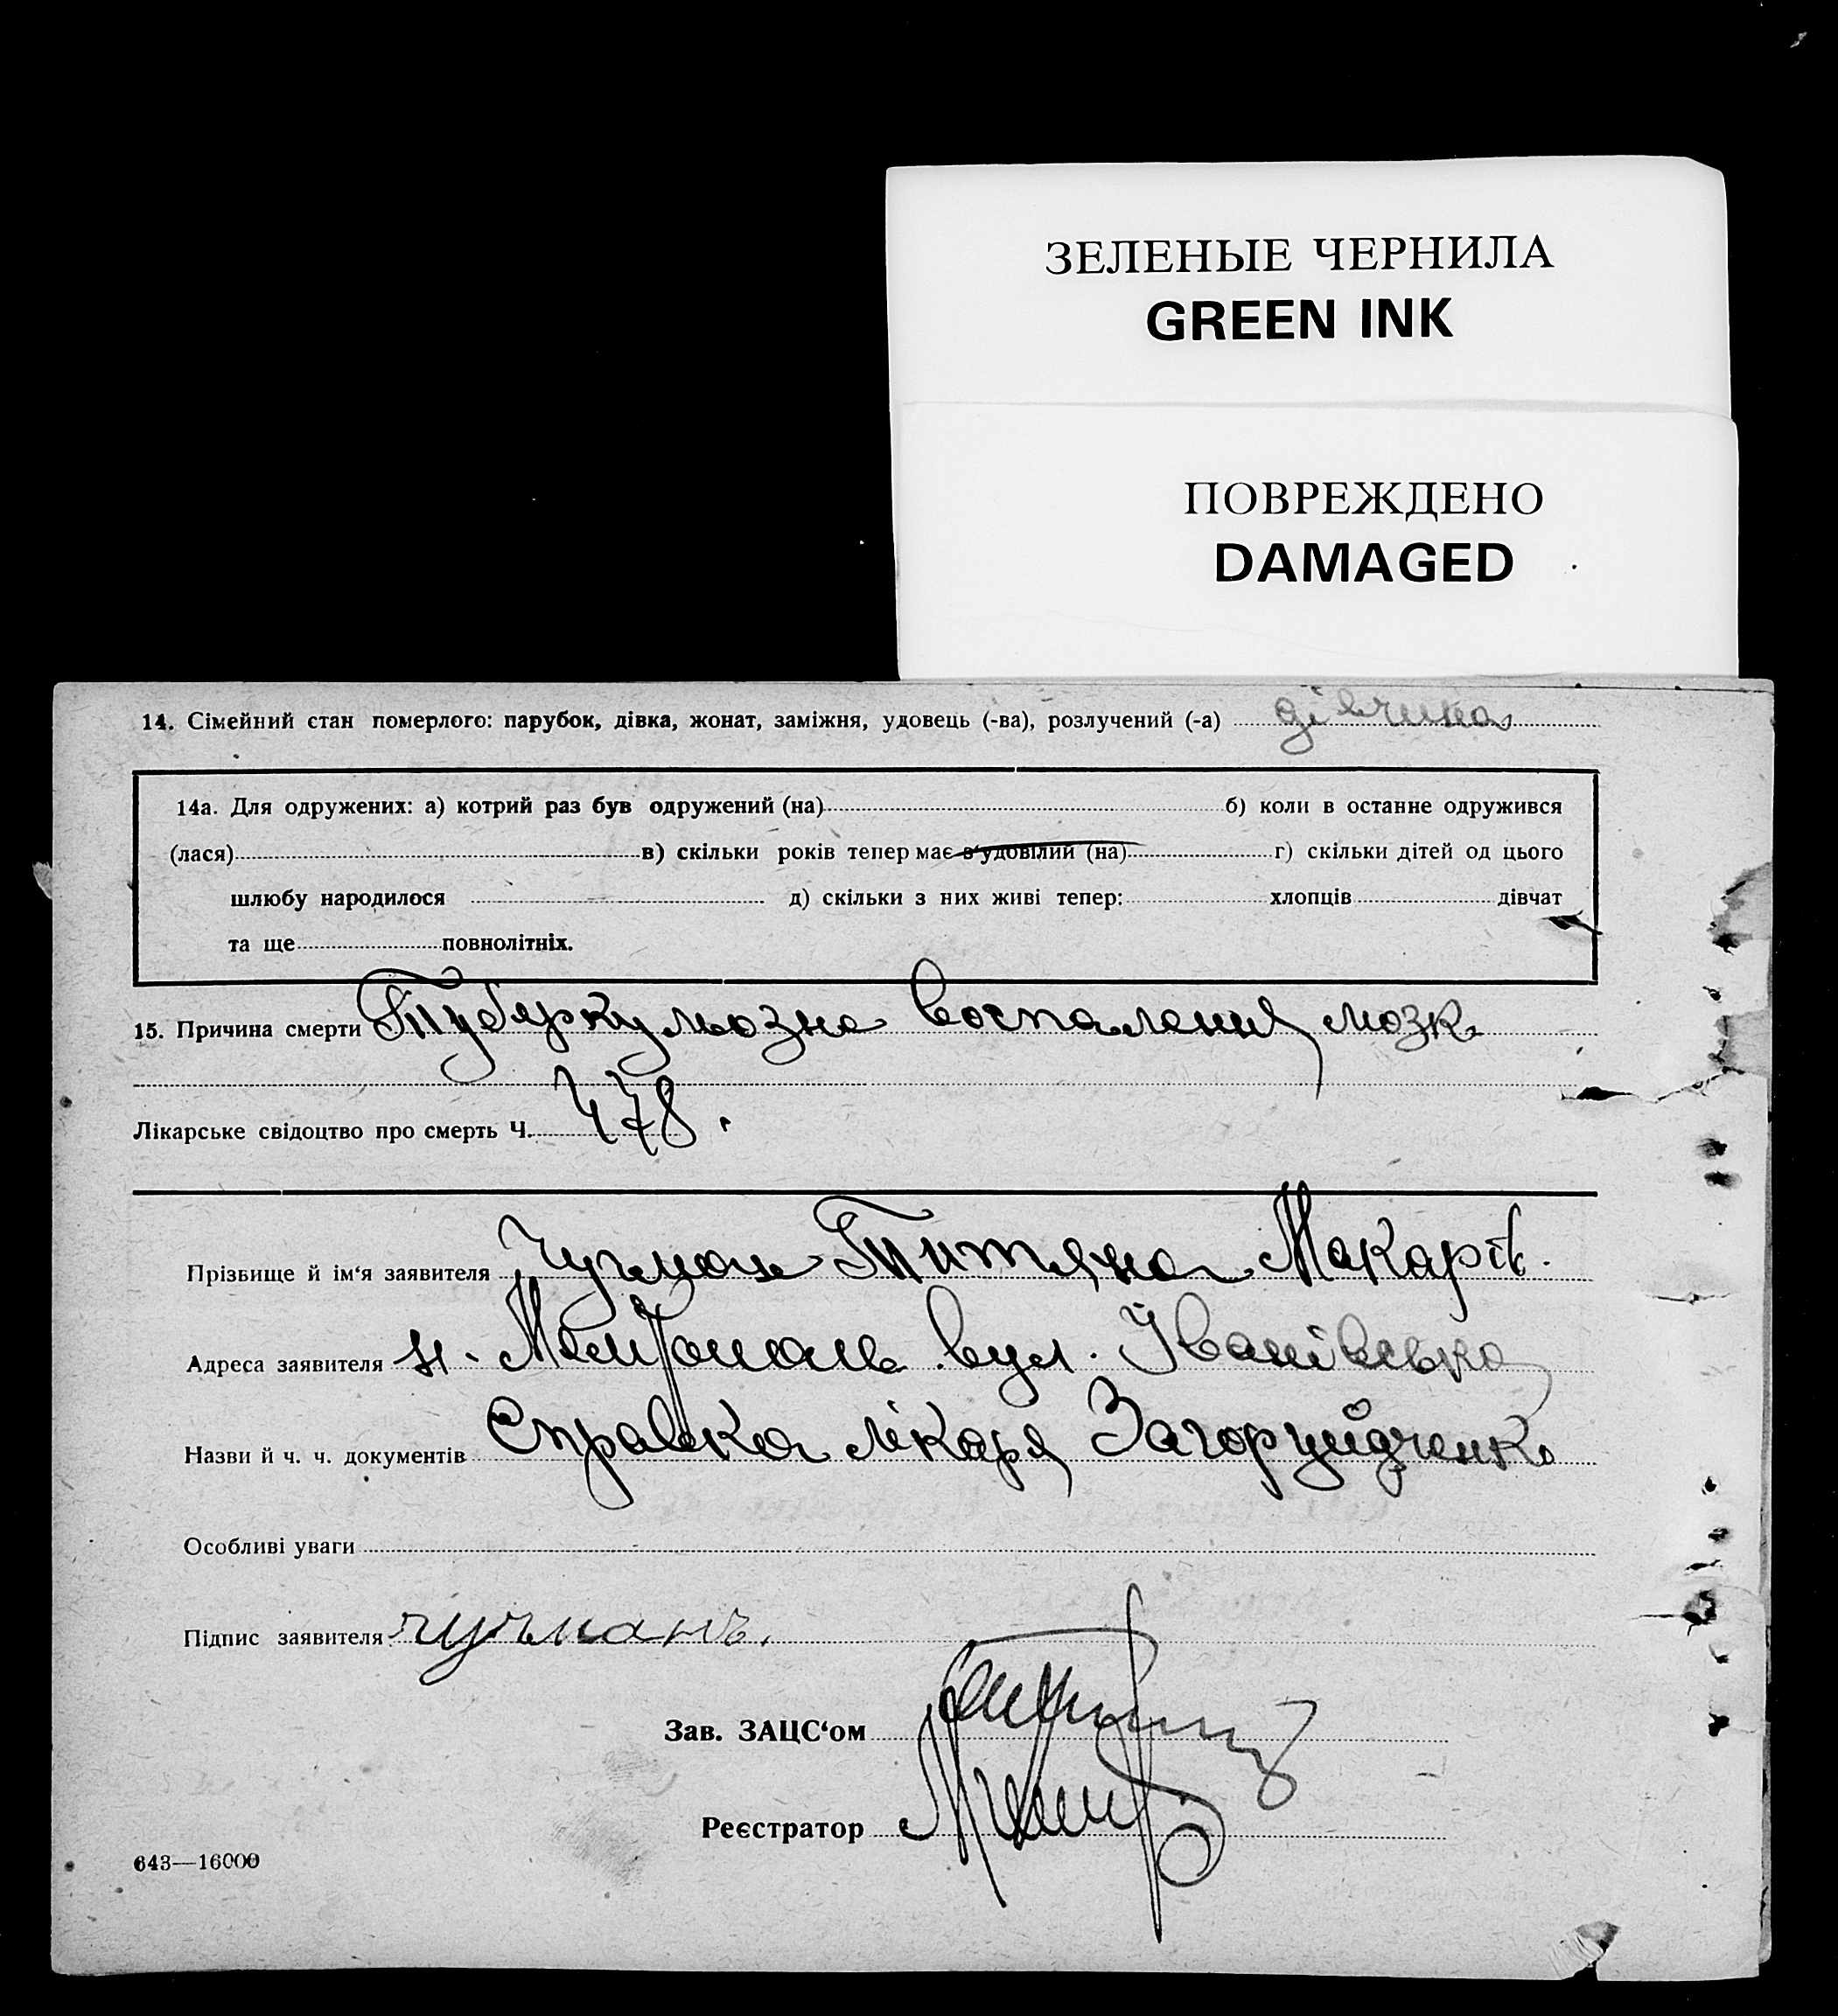 ЗЕЛЕНЫЕ ЧЕРНИЛА
GREEN INK
ПОВРЕЖДЕНО
DAMAGED
14. Сімейний стан померлого: парубок, дівка, жонат, заміжня, удовець (-ва), розлучений (-а) дівчина
14а. Для одружених: а) котрий раз був одружений (на) б) коли в останне одружився
(лася) в) скільки років тепер має з'удовілий (на) г) скільки дітей од цього
шлюбу народилося д) скільки з них живі тепер: хлопців дівчат
та ще повнолітніх.
15. Причина смерти Туберкульозне воспаления мозк
Лікарське свідоцтво про смерть Ч. 478.
Прізвище й ім'я заявителя Чучман Титяна Макарів.
Адреса заявителя м. вул. Іванівська
Назви й ч. ч. документів Справка лікаря
Особливі уваги
Підпис заявителя Чучманъ.
Зав. ЗАЦС'ом
Реєстратор
643—16000